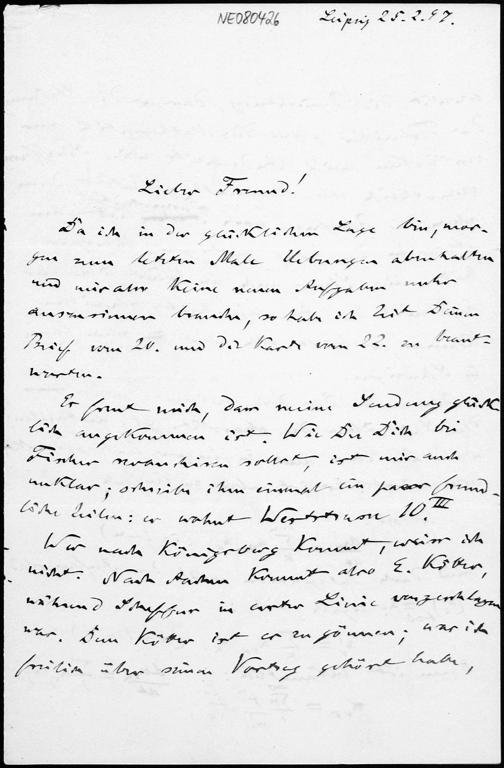 NE080426
Leipzig 25.2.97.
Lieber Freund!
Da ich in der glücklichen Lage bin, mor-
gen zum letzten Male Uebungen abzuhalten
und mir also keine neuen Aufgaben mehr
auszusinnen brauche, so habe ich Zeit Deinen
Brief vom 20. und die Karte vom 22. zu beant-
worten.
Es freut mich, dass meine Sendung glück
lich angekommen ist. Wie Du Dich bei
Fischer revanchiren sollst, ist mir auch
unklar; schreibe ihm einmal ein paar freund-
liche Zeilen: er wohnt Weststrasse 10.III
Wer nach Königsberg kommt, weiss ich
nicht. Nach Aachen kommt also E. Kötter,
während Scheffer in erster Linie vorgeschlagen
war. Dem Kötter ist es zu gönnen; was ich
freilich über seinen Vortrag gehört habe,